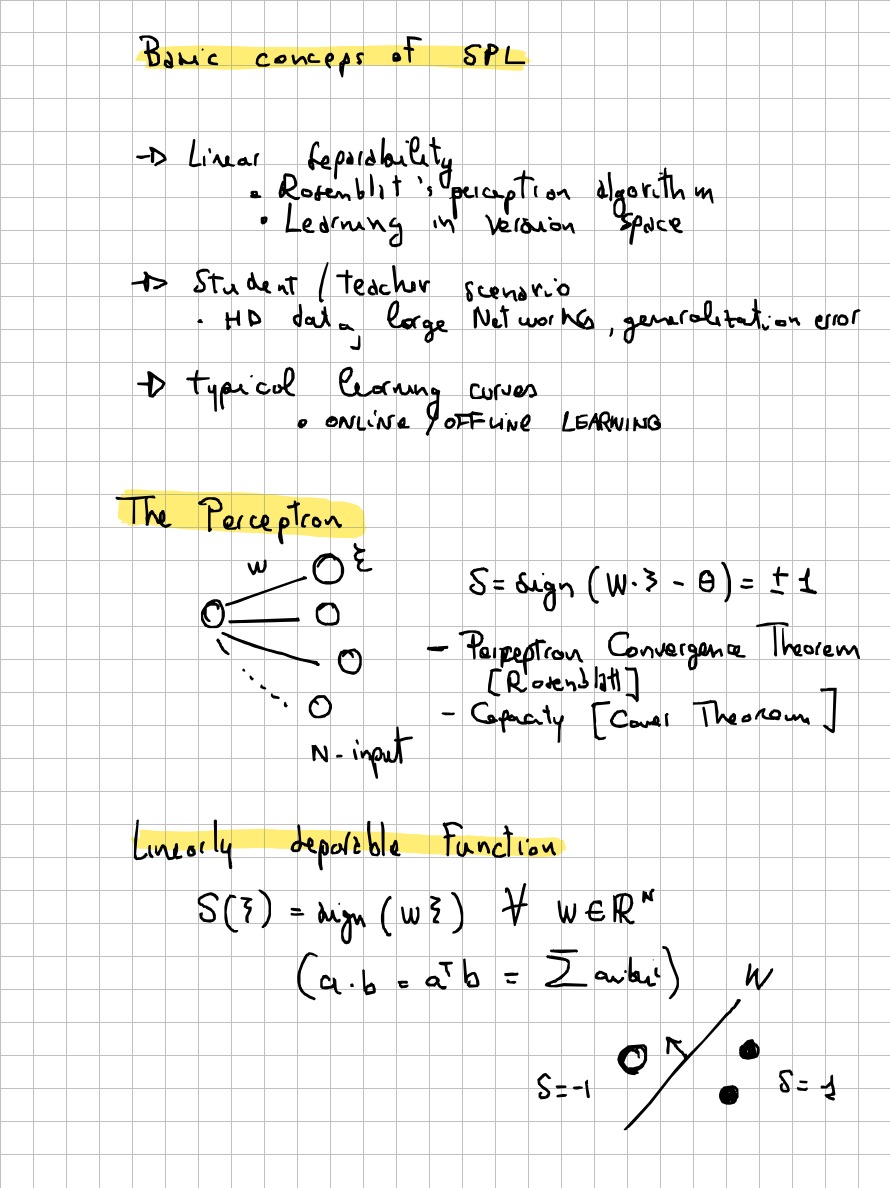 Basic conceps of SPL
→ Linear Separability
• Rosenblit's perception algorithm
• Learning in version space
→ Student / teacher scenario
• HD data, large Networks, generalization error
→ typical learning curves
• ONLINE / OFFLINE LEARNING
The Perceptron
W ξ
S = sign (W·ξ - θ) = ± 1
- Perceptron Convergence Theorem
[Rosenblatt]
- Capacity [Cover Theorem]
N-input
Linearly separable Function
S(ξ) = sign (Wξ) ∀ W ∈ ℝᴺ
(a·b = aᵀb = ∑ aᵢbᵢ)
W
S=-1 S=1